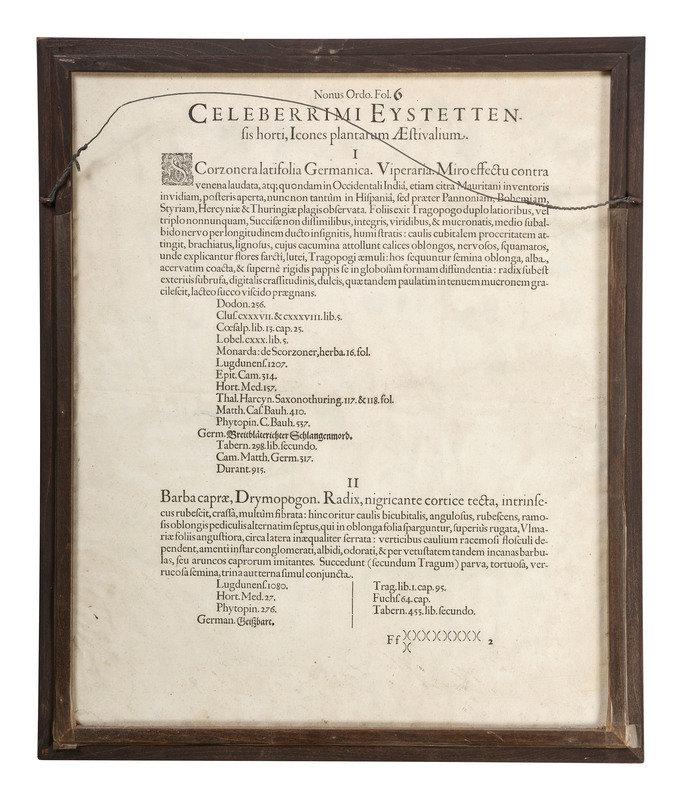 Nonus Ordo. Fol. 6
CELEBERRIMI EYSTETTEN-
ſis horti, Icones plantarum Æſtivalium.
I
SCorzonera latifolia Germanica. Viperaria. Miro effectu contra
venena laudata, atq; quondam in Occidentali Indiâ, etiam citra Mauritani inventoris
invidiam, poſteris aperta, nunc non tantùm in Hiſpaniâ, ſed præter Pannoniam, Bohemiam,
Styriam, Hercyniæ & Thuringiæ plagis obſervata. Foliis exit Tragopogo duplo latioribus, vel
triplo nonnunquam, Succiſæ non diſſimilibus, integris, viridibus, & mucronatis, medio ſubal-
bido nervo per longitudinem ducto inſignitis, humi ſtratis: caulis cubitalem proceritatem at-
tingit, brachiatus, lignoſus, cujus cacumina attollunt calices oblongos, nervoſos, ſquamatos,
unde explicantur flores farcti, lutei, Tragopogi æmuli: hos ſequuntur ſemina oblonga, alba,
acervatim coacta, & ſupernè rigidis pappis ſe in globoſam formam diffundentia: radix ſubeſt
exteriùs ſubrufa, digitalis craſſitudinis, dulcis, quæ tandem paulatim in tenuem mucronem gra-
cileſcit, lacteo ſucco viſcido prægnans.
Dodon. 256.
Cluſ. cxxxvii. & cxxxviii. lib. 5.
Cœſalp. lib. 13. cap. 25.
Lobel. cxxx. lib. 5.
Monarda: de Scorzoner, herba. 16. fol.
Lugdunenſ. 1207.
Epit. Cam. 314.
Hort. Med. 157.
Thal. Harcyn. Saxonothuring. 117. & 118. fol.
Matth. Caſ. Bauh. 410.
Phytopin. C. Bauh. 537.
Germ. Breitbläterichter Schlangenmord.
Tabern. 298. lib. ſecundo.
Cam. Matth. Germ. 317.
Durant. 915.
II
Barba capræ, Drymopogon. Radix, nigricante cortice tecta, intrinſe-
cus rubeſcit, craſſa, multùm fibrata: hinc oritur caulis bicubitalis, anguloſus, rubeſcens, ramo-
ſis oblongis pediculis alternatim ſeptus, qui in oblonga folia ſparguntur, ſuperiùs rugata, Vlma-
riæ foliis anguſtiora, circa latera inæqualiter ſerrata: verticibus caulium racemoſi floſculi de-
pendent, amenti inſtar conglomerati, albidi, odorati, & per vetuſtatem tandem incanas barbu-
las, ſeu aruncos caprorum imitantes. Succedunt (ſecundum Tragum) parva, tortuoſa, ver-
rucoſa ſemina, trina aut terna ſimul conjuncta.
Lugdunenſ. 1080.
Hort. Med. 27.
Phytopin. 276.
German. Geißbart.
Trag. lib. 1. cap. 95.
Fuchſ. 64. cap.
Tabern. 455. lib. ſecundo.
Ff )()()()()()()()()( 2
)(